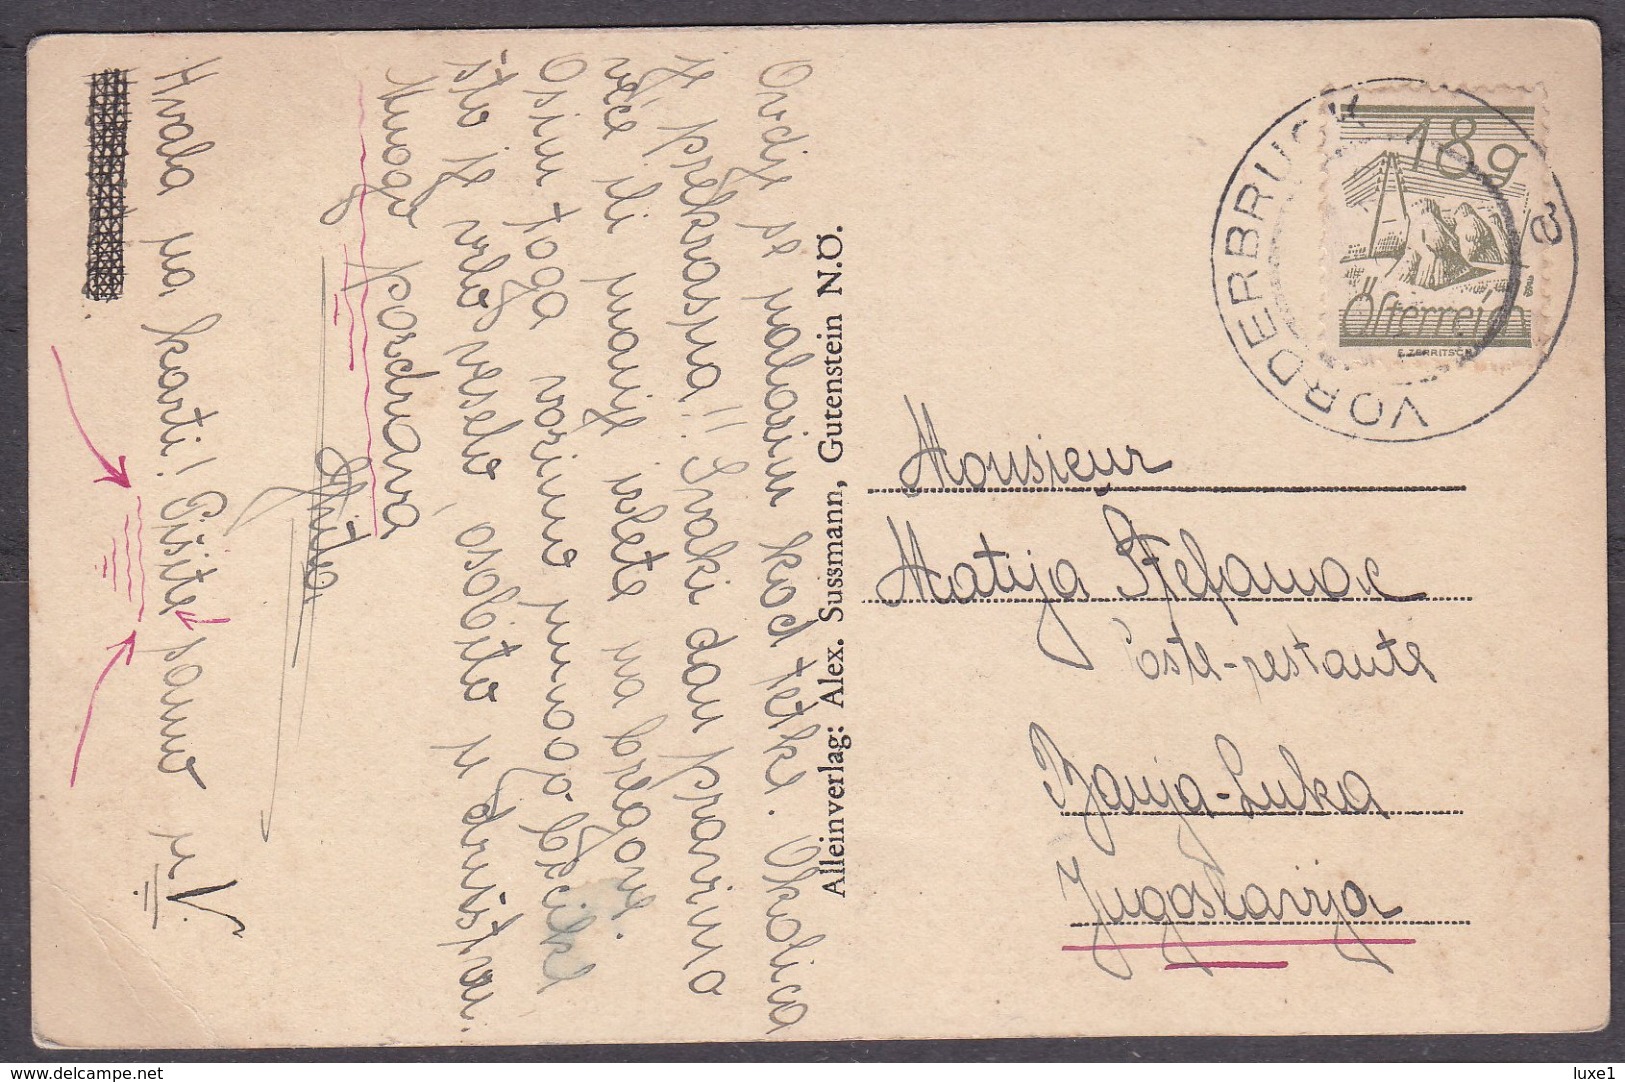 Ovdje se nalazim kod tetke. Okolica
je prekrasna!! Svaki dan pravimo
veće ili manje izlete na bregove.
Osim toga vozimo mnogo bicikle
što je vrlo veselo, osobito u društvu.
Mnogo pozdrava
Hvala na karti! Pišite samo u V.
Alleinverlag: Alex. Sussmann, Gutenstein N.Ö.
VORDERBRUCK
a
18 g
Österreich
E. ZERRITSCH
Monsieur
Matija Štefanac
Poste-restante
Banja-Luka
Jugoslavija
www.delcampe.net
luxe1